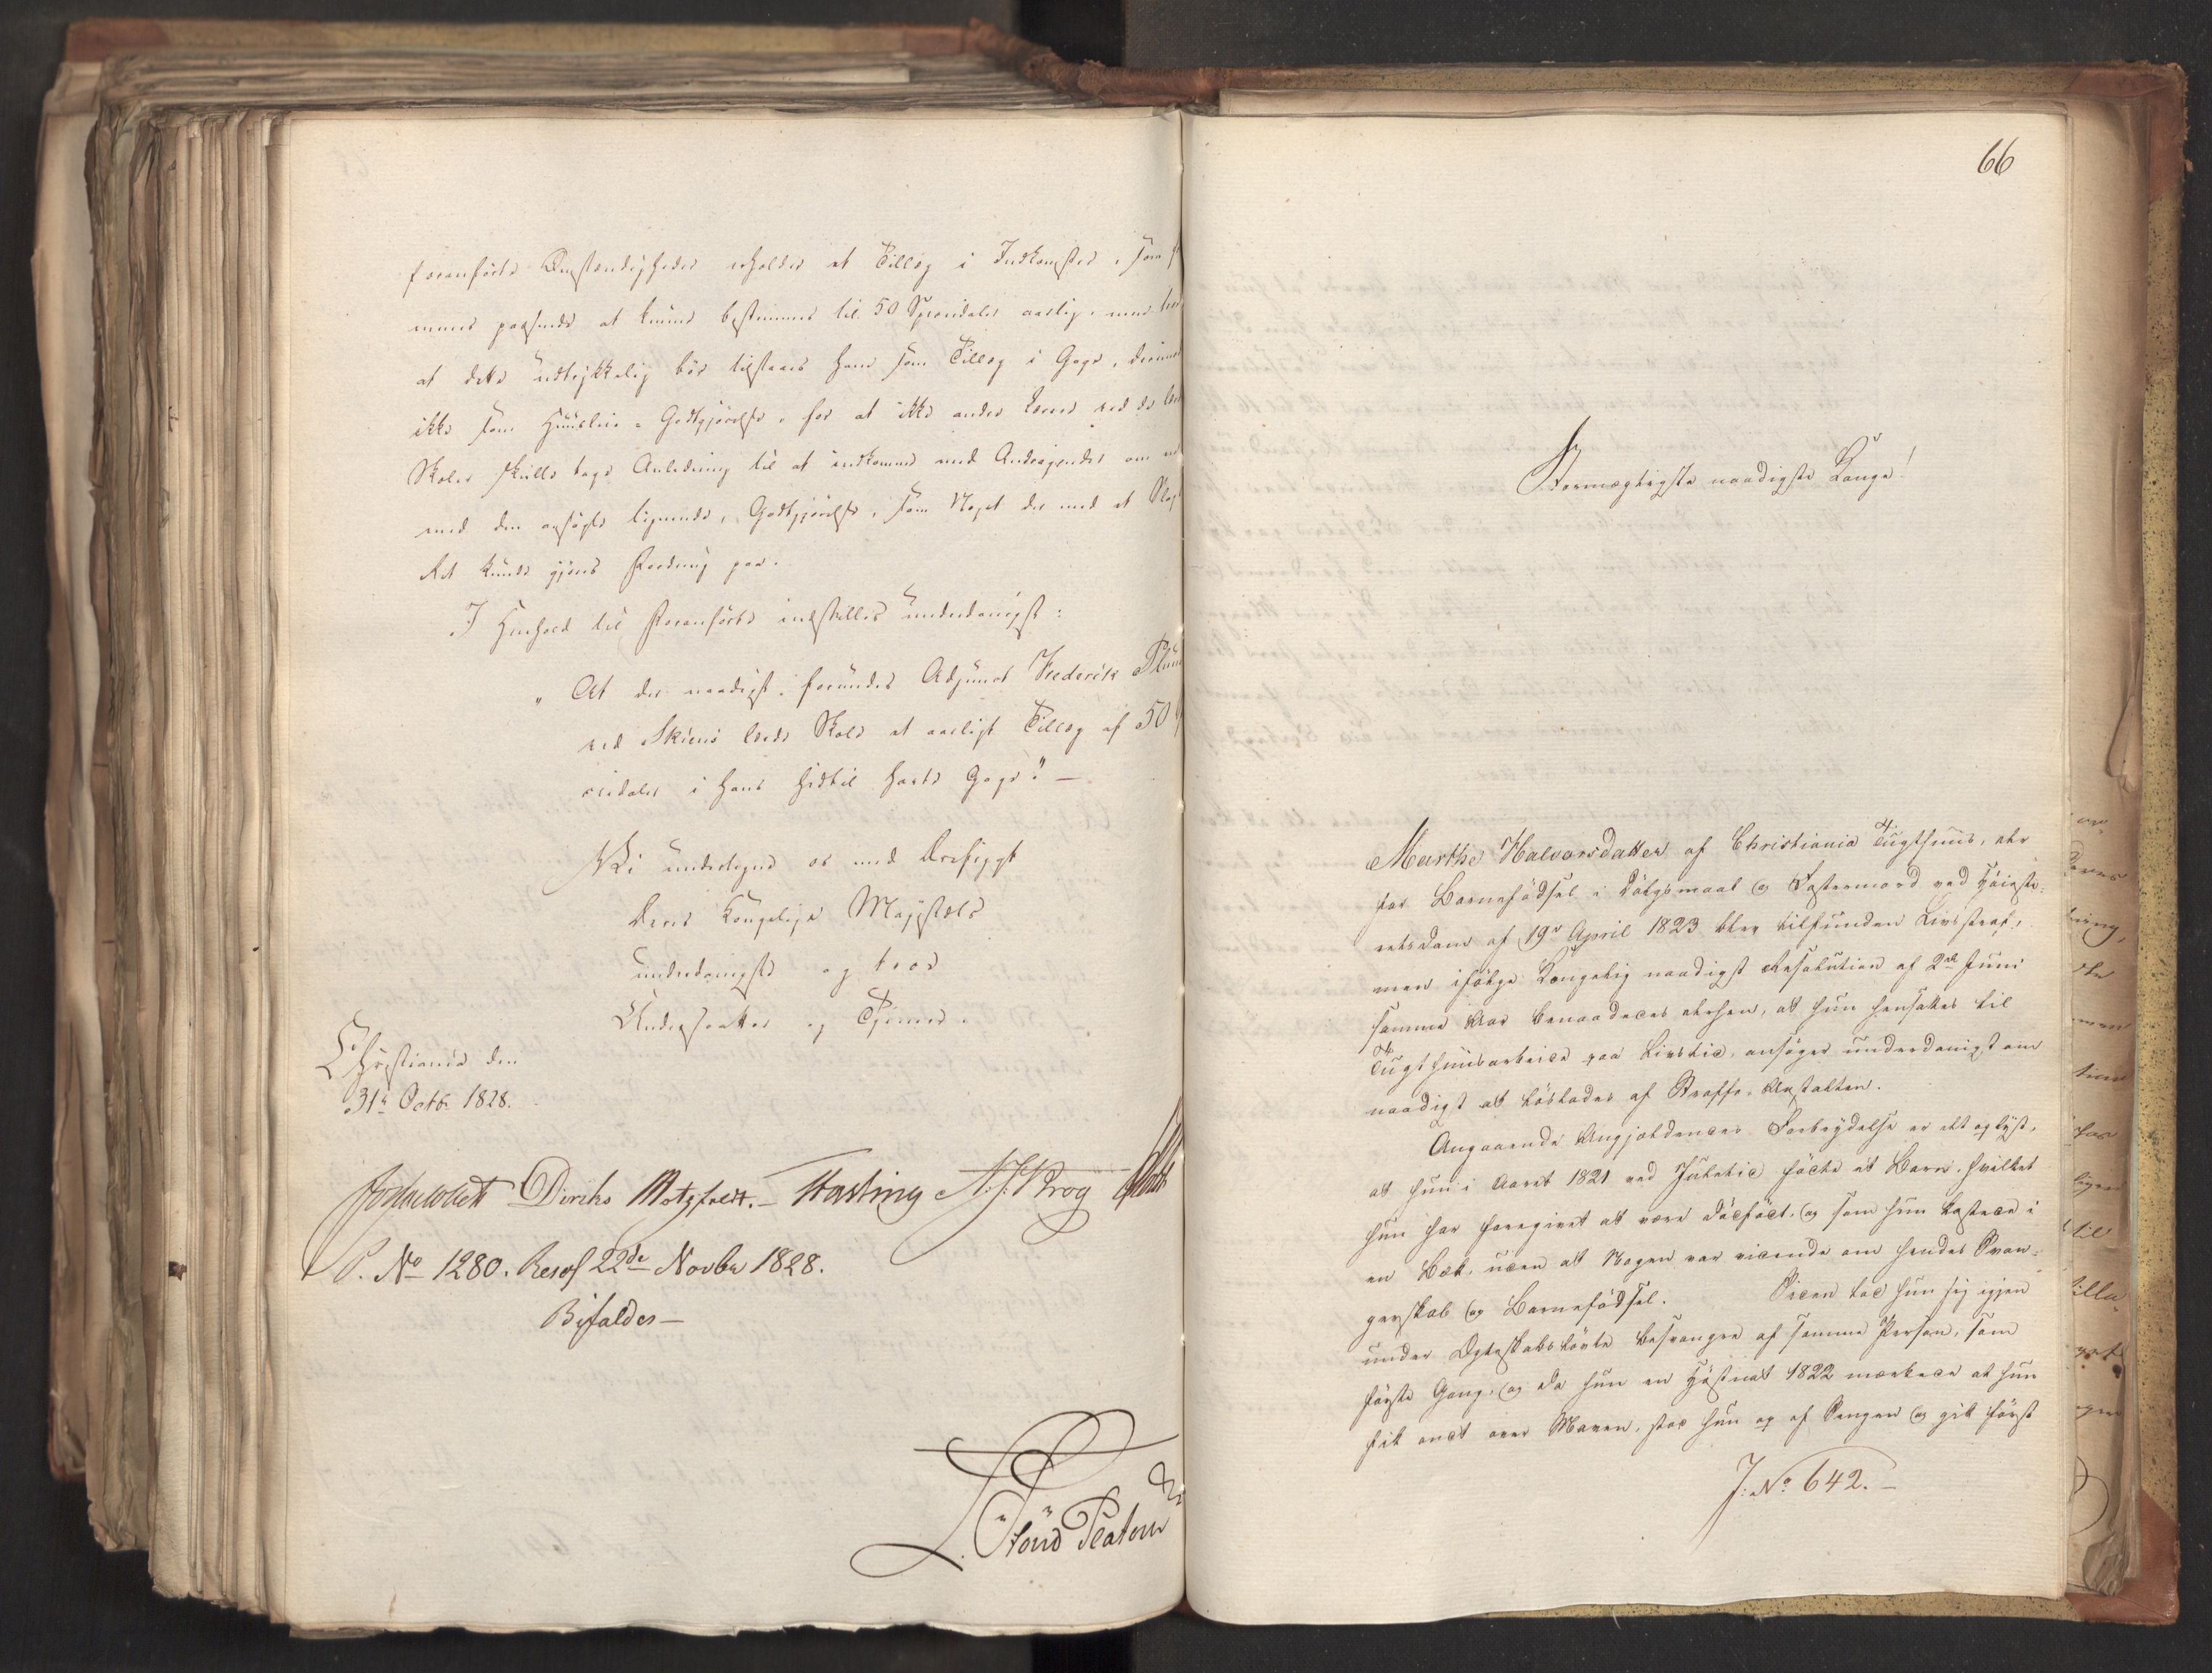 foranførte Omstændigheder erholder et Tillæg i Indkomster, som
menes passende at kunne bestemmes til 50 Speciedaler aarlig, men
at dette udtrykkelig bör tilstaaes ham som Tillæg i Gage, derimod
ikke som Huusleie-Godtgjörelse, for at ikke andre Lærere ved de lærde
Skoler skulle tage Anledning til at indkomme med Andragender om en
med den ansögte lignende, Godtgjörelse, som Noget der med et Slags
Ret kunde gjøres Fordring paa.
I Henhold til Foranförte indstilles underdanigst:
„At der naadigst forundes Adjunct Frederik
ved Skiens lærde Skole et aarligt Tillæg af 50
ciedaler i hans hidtil havte Gage." —
Vi undertegne os med Dresigt
Deres Kongelige Majestæts
underdanigste og troe
Undersaatter og Tjenere.
Christiania den
31te Octbr 1828.
Diriks Motzfeldt. Hasting N. J. Krog
P. No 1280. Resol 22de Novbr 1828.
Bifaldes —
Löud Platou
66
Stormægtigste naadigste Konge!
Marthe Halvorsdatter af Christiania Tugthuus, der
for Barnefödsel i Dölgsmaal og Fostermord ved Höieste-
retsdom af 19de April 1823 blev tilfunden Livsstraf,
men ifölge Kongelig naadigst Resolution af 2den Juni
samme Aar benaadedes derhen, at hun hensattes til
Tugthuusarbeide paa Livstid, ansöger underdanigst om
naadigst at löslades af Straffe-Anstalten.
Angaaende Angjeldendes Forbrydelse er det oplyst,
at hun i Aaret 1821 ved Juletid födte et Barn, hvilket
hun har foregivet at være dödfödt, og som hun kastede i
en Bæk, uden at Nogen var vidende om hendes Svan-
gerskab og Barnefödsel. Siden lod hun sig igjen
under Ægteskabslövte besvangre af samme Person, som
förste Gang, og da hun en Höstnat 1822 mærkede at hun
fik ondt over Maven, stod hun op af Sengen og gik först
J: No 642. —